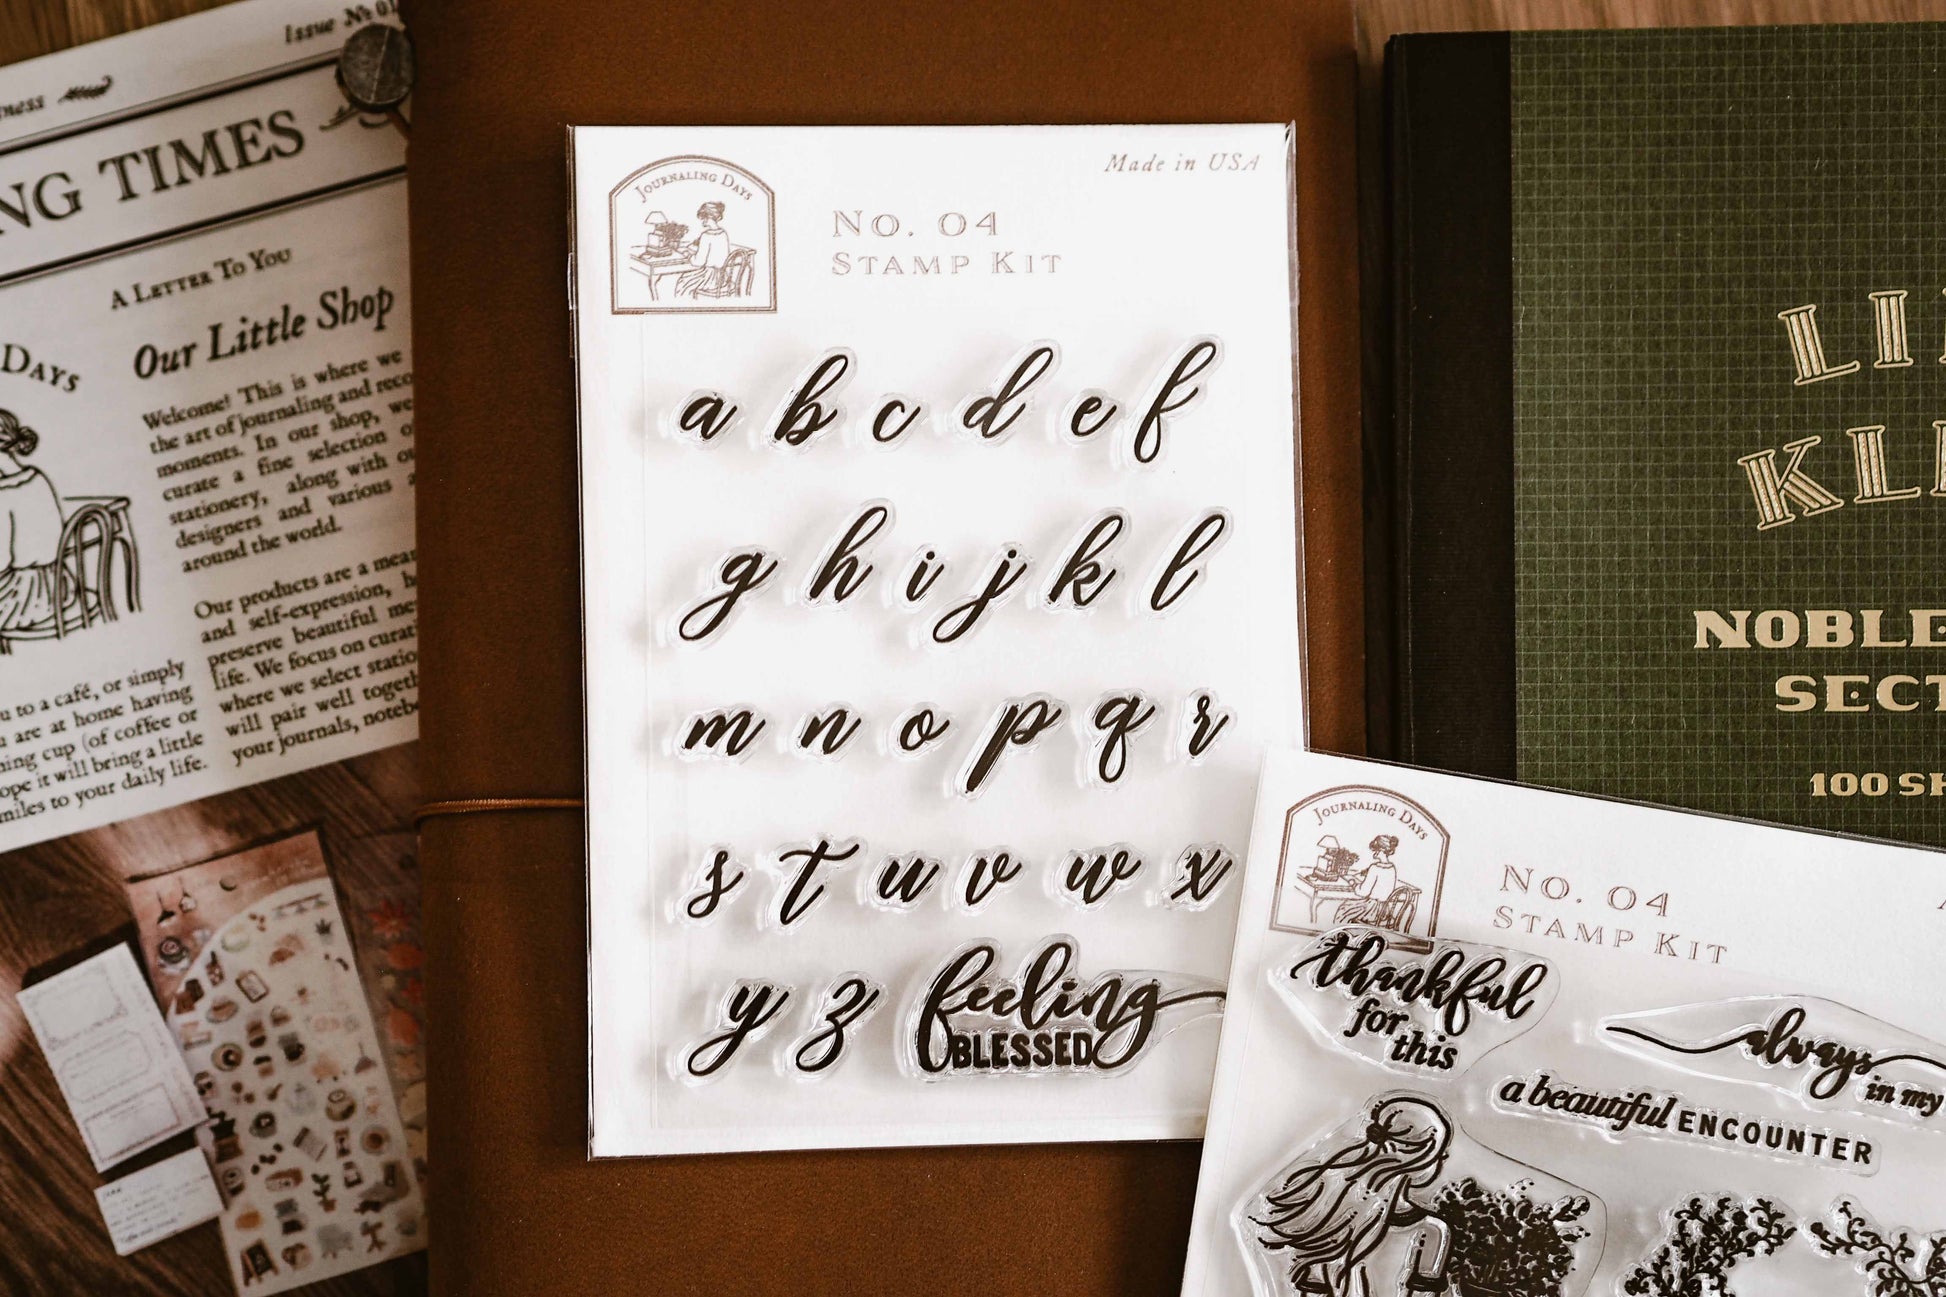 Issue № 01
NG TIMES
A LETTER TO YOU
Our Little Shop
DAYS
Welcome! This is where we
the art of journaling and
moments. In our shop, we
curate a fine selection
stationery, along with
designers and various
around the world.
Our products are a
and self-expression,
preserve beautiful
life. We focus on
where we select
will pair well
your journals,
to a café, or simply
are at home having
cup (of coffee or
it will bring a little
to your daily life.
JOURNALING DAYS
Made in USA
No. 04
STAMP KIT
a b c d e f
g h i j k l
m n o p q r
s t u v w x
y z feeling
BLESSED
LI
KL
NOBLE
SECT
100 SH
JOURNALING DAYS
No. 04
STAMP KIT
thankful
for
this
always
in my
a beautiful ENCOUNTER